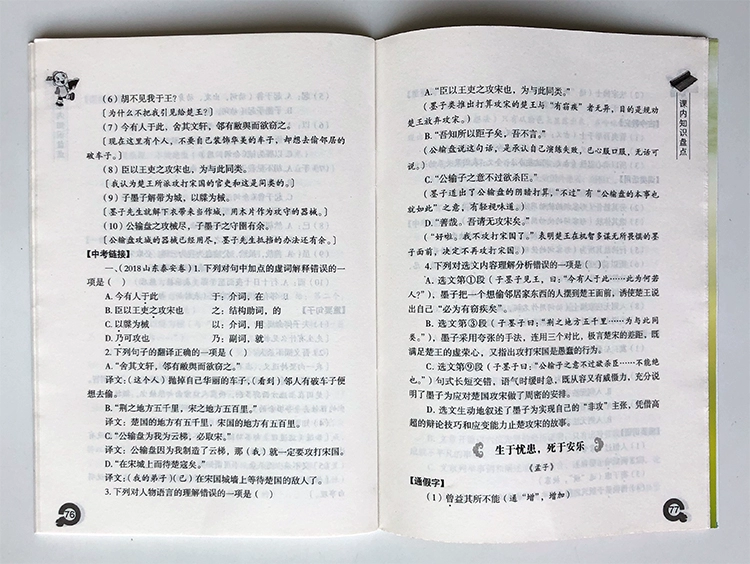 （6）胡不见我于王？
[为什么不把我引见给楚王？]
（7）今有人于此，舍其文轩，邻有敝舆而欲窃之。
[现在这里有个人，不要自己装饰华美的车子，却想去偷邻居的
破车子。]
（8）臣以王吏之攻宋也，为与此同类。
[我认为楚王所派攻打宋国的官吏和这是同类的。]
（9）子墨子解带为城，以牒为械。
[墨子先生就解下衣带来当作城，用木片作为攻守的器械。]
（10）公输盘之攻械尽，子墨子之守圉有余。
[公输盘攻城的器械已经用尽，墨子先生抵挡的办法还有余。]
【中考链接】
一、（2018山东泰安卷）1. 下列对句中加点的虚词解释错误的一
项是（ ）
A. 今有人于此 于：介词，在
B. 臣以王吏之攻宋也 之：结构助词，的
C. 以牒为械 以：介词，用
D. 乃可攻也 乃：副词，就
2. 下列句子的翻译正确的一项是（ ）
A. “舍其文轩，邻有敝舆而欲窃之。”
译文：（这个人）抛掉自己华丽的车子，（看到）邻人有破车子便
想去偷。
B. “荆之地方五千里，宋之地方五百里。”
译文：楚国的地方有五千里，宋国的地方有五百里。
C. “公输盘为我为云梯，必取宋。”
译文：公输盘因为我制造了云梯，那（我）就一定要攻打宋国。
D. “在宋城上而待楚寇矣。”
译文：（我的弟子）（已）在宋国城墙上等待楚国的敌人了。
3. 下列对人物语言的理解错误的一项是（ ）
76
课内知识盘点
A. “臣以王吏之攻宋也，为与此同类。”
（墨子类推出打算攻宋的楚王与“有窃疾”者无异，目的是规劝
楚王放弃攻宋。）
B. “吾知所以距子矣，吾不言。”
（公输盘说这句话，是承认自己演练失败，已心服口服，无话可
说。）
C. “公输子之意不过欲杀臣。”
（墨子道出了公输盘的阴暗打算，“不过”有“公输盘的本事也
就如此”之意，有轻视味道。）
D. “善哉。吾请无攻宋矣。”
（“好啦。我不攻打宋国了。”表明楚王在机智多谋无所畏惧的墨
子面前，决定不再攻打宋国。）
4. 下列对选文内容理解分析错误的一项是（ ）
A. 选文第①段（子墨子见王，曰：“今有人于此……此为何若
人？”），墨子把一个想偷邻居家东西的人摆到楚王面前，诱使楚王说
出自己“必为有窃疾矣”。
B. 选文第③段（子墨子曰：“荆之地方五千里……为与此同
类。”），墨子采用夸张的手法，连用三个对比，极言楚宋的差距，既
满足楚王的虚荣心，又指出攻打宋国是愚蠢的行为。
C. 选文第⑨段（子墨子曰：“公输子之意不过欲杀臣……不能绝
也。”）句式长短交错，语气时缓时急，既从容又有威慑力，充分说
明了墨子为应对楚国攻宋做了周密的安排。
D. 选文生动地叙述了墨子为实现自己的“非攻”主张，凭借高
超的辩论技巧和应变能力止楚攻宋的故事。
生于忧患，死于安乐
《孟子》
【通假字】
（1）曾益其所不能（通“增”，增加）
77